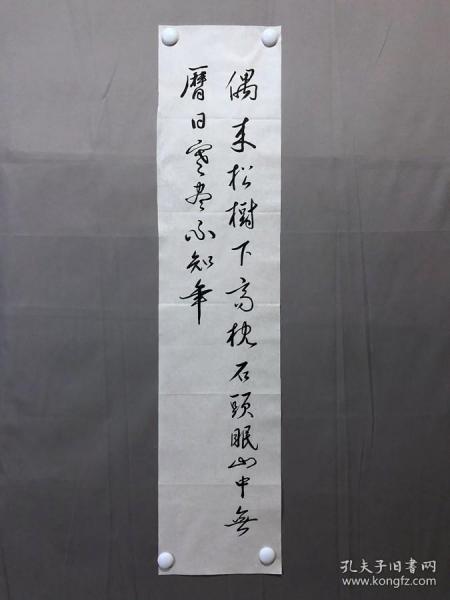 偶来松樹下高枕石頭眠山中無
曆日寒尽不知年
孔夫子旧书网
www.kongfz.com